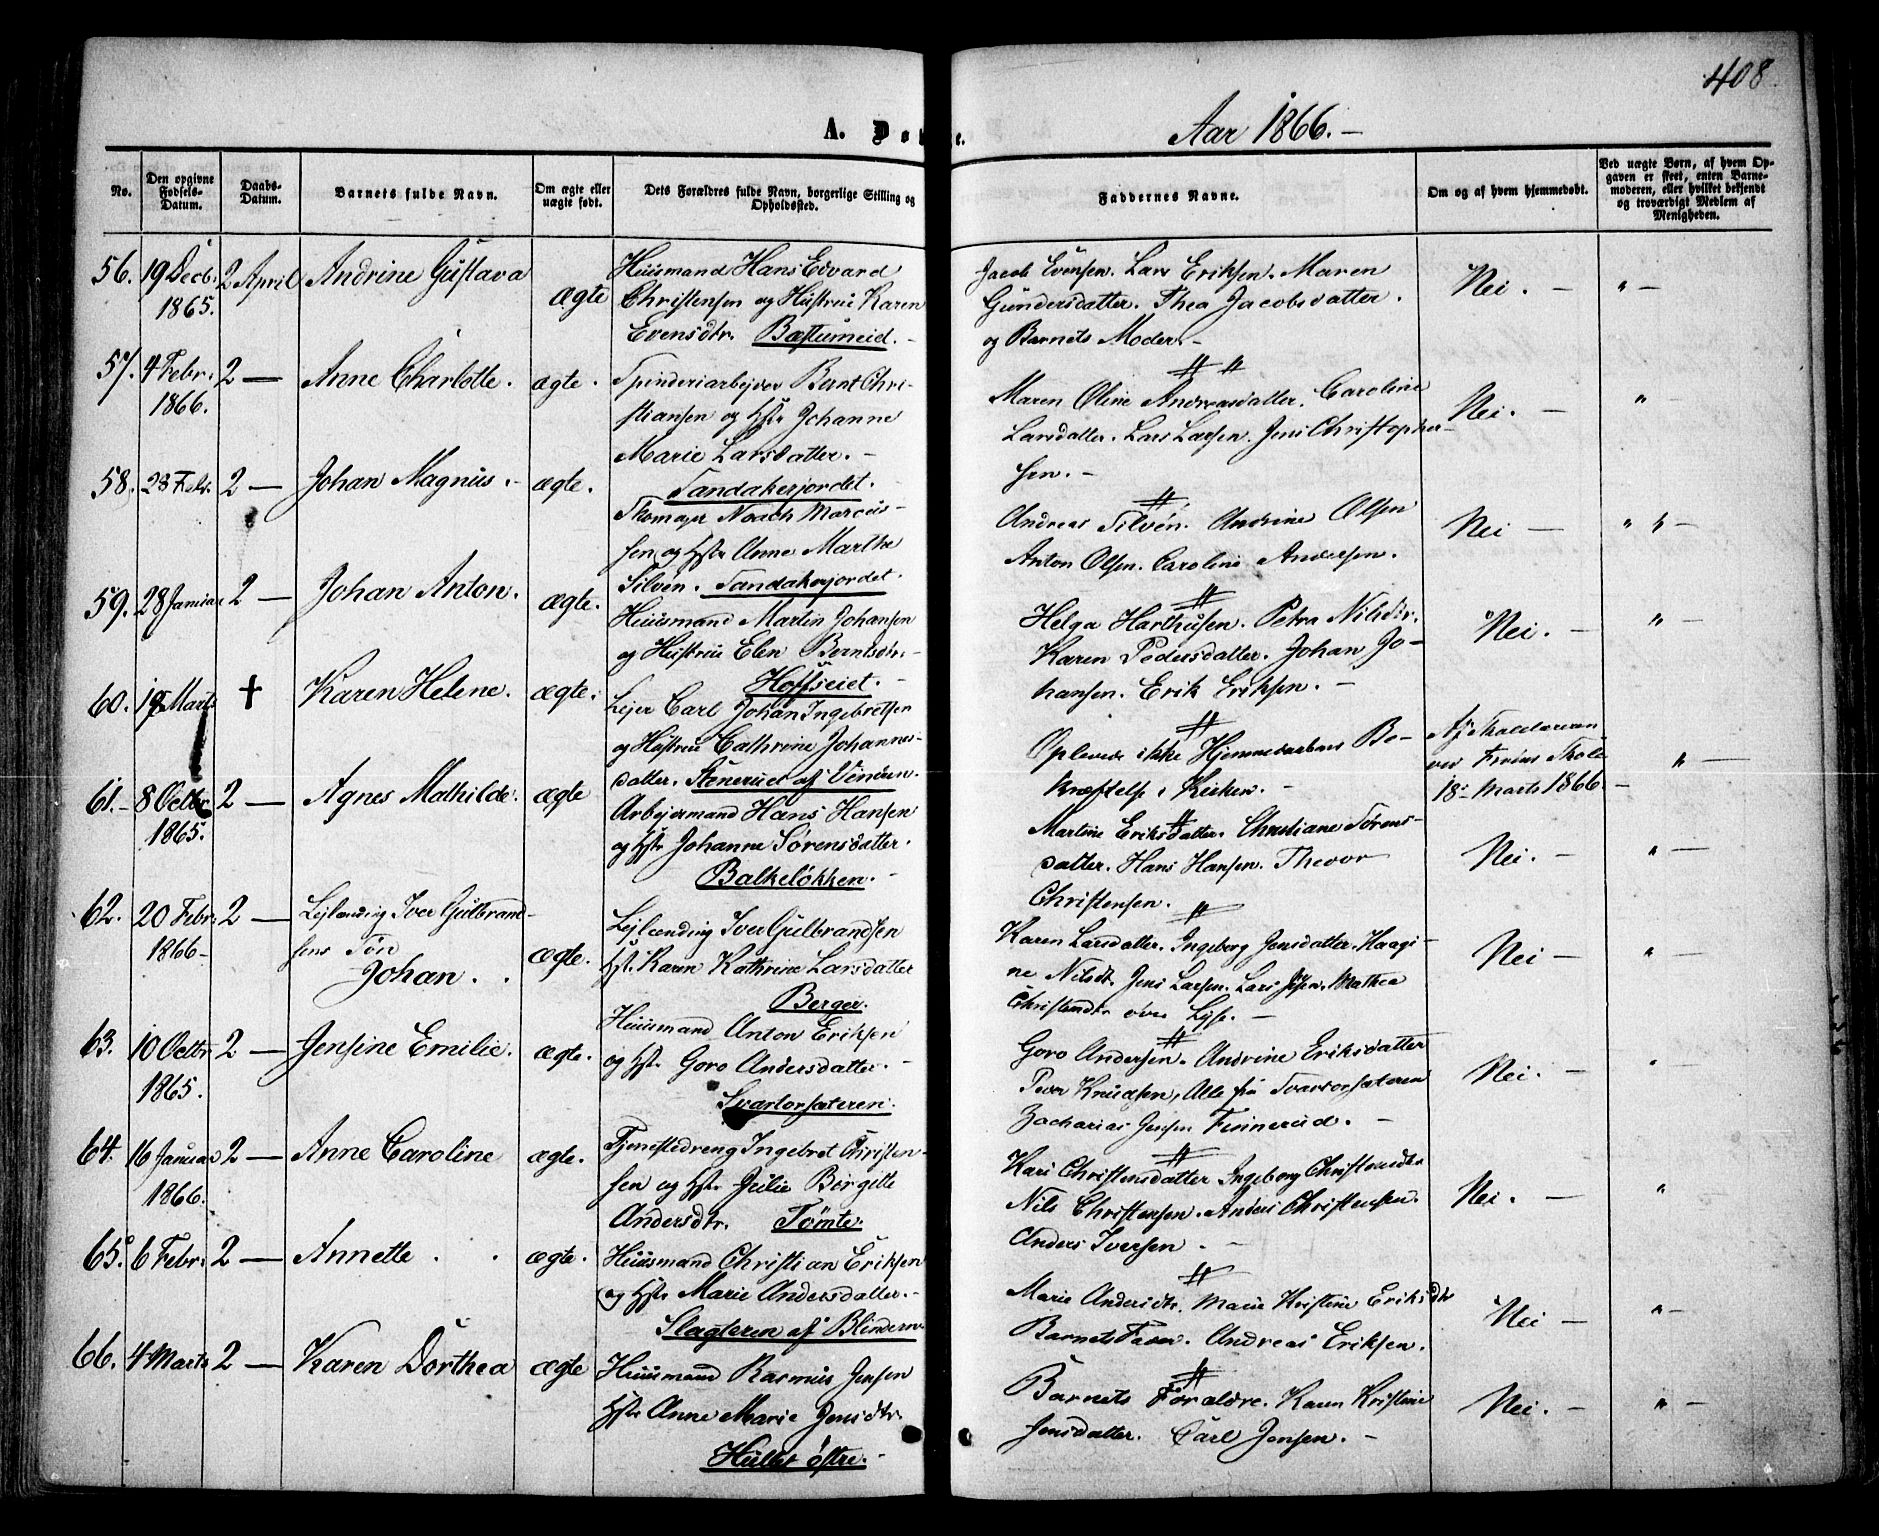 408.
A. Døb e. Aar 1866. —
No.
Den opgivne Fødsels-Datum.
Daabs-Datum.
Barnets fulde Navn.
Om ægte eller uægte født.
Dets Forældres fulde Navn, borgerlige Stilling og Opholdssted.
Faddernes Navne.
Om og af hvem hjemmedøbt.
Ved uægte Børn, af hvem Opgaven er skeet, enten Barnemoderen, eller hvilket bekjendt og troværdigt Medlem af Menigheden.
56. 19 Decb. 1865. 2 April Andrine Gustava ægte
Huusmand Hans Edvard
Christensen og Hustrue Karen
Evensdtr. Bæstumeid. —
Jacob Evensen. Lars Eriksen. Maren
Gundersdatter. Thea Jacobsdatter.
og Barnets Moder. —
Nei. — " —
57. 4 Febr. 1866. 2 — Anne Charlotte. ægte.
Spinderiarbejder Bernt Chri-
stiansen og Hstr Johanne
Marie Larsdatter. —
Sandakerjordet. —
Maren Oline Andreasdatter. Caroline
Larsdatter. Lars Larsen. Jens Christopher-
sen. —
Nei. — " —
58. 23 Febr. 2 — Johan Magnus. — ægte.
Skomager Noach Marcus-
sen og Hstr Anne Marthe
Silvén. Sandakerjordet.
Andreas Silvén. Andrine Olsen
Anton Olsen. Caroline Andersen.
Nei — " —
59. 28 Januar 2 — Johan Anton. ægte.
Huusmand Martin Johansen
og Hustrue Elen Berntsdtr. —
Hoffseiet. —
Helga Harthusen. Petra Nilsdtr.
Karen Pedersdatter. Johan Jo-
hansen. Erik Eriksen. —
Nei. — " —
60. Marts † Karen Helene. ægte.
Lejer Carl Johan Ingebretsen
og Hustrue Cathrine Johannes-
datter. Steneruet af Vindern.
Oplevede ikke Hjemmedaabens Be-
kræftelse i Kirken. —
Af Skolelæreren
ved Skole
18. Marts 1866. —
" —
61. — 8 Octbr 1865. 2 — Agnes Mathilde. ægte
Arbejdermand Hans Hansen
og Hstr Johanne Sørensdatter.
Balkeløkken. —
Martine Eriksdatter. Christiane Sørens-
datter. Hans Hansen. Theodor
Christensen.
Nei. — " —
62. 20 Febr. 1866 — 2 — Lejlænding Iver Gulbrand-
sens Søn
Johan. ægte.
Lejlænding Iver Gulbrandsen
Hst. Karen Kathrine Larsdatter
Berger.
Karen Larsdatter. Ingeborg Jensdatter. Haagi-
ne Nilsdt. Jens Larsen. Lars Mathea
Christensdtr øvre Lyse. —
Nei — " —
63. 10 Octbr 1865. 2 — Jensine Emilie. ægte.
Huusmand Anton Eriksen
og Hstr Goro Andersdatter. —
Svartorsæteren.
Goro Andersen. Andrine Eriksdatter
Peder Knudsen, Alle fra Svartorsæteren
Zacharias Jensen Finnerud. —
Nei. — "
64. 16 Januar 1866. 2 — Anne Caroline ægte.
Tjenestedreng Ingebret Christen-
sen og Hstr Julie Birgitte
Andersdtr. Tømte.
Kari Christensdatter Ingeborg Christensdtr
Nils Christensen. Anders Christensen.
Anders Iversen —
Nei. — "
65. 6 Febr. 2 — Annette. ægte.
Huusmand Christian Eriksen
og Hstr Marie Andersdatter. —
Slagteren af Blindern.
Marie Andersdtr. Marie Kristine Eriksdtr
Barnets Fader. Andreas Eriksen.
Nei — " —
66. 4 Marts 2 — Karen Dorthea ægte
Huusmand Rasmus Jensen
Hstr Anne Marie Jensdtr.
Hullet østre. —
Barnets Forældre. Karen Kristine
Jensdatter. Carl Jensen. —
Nei. — " —